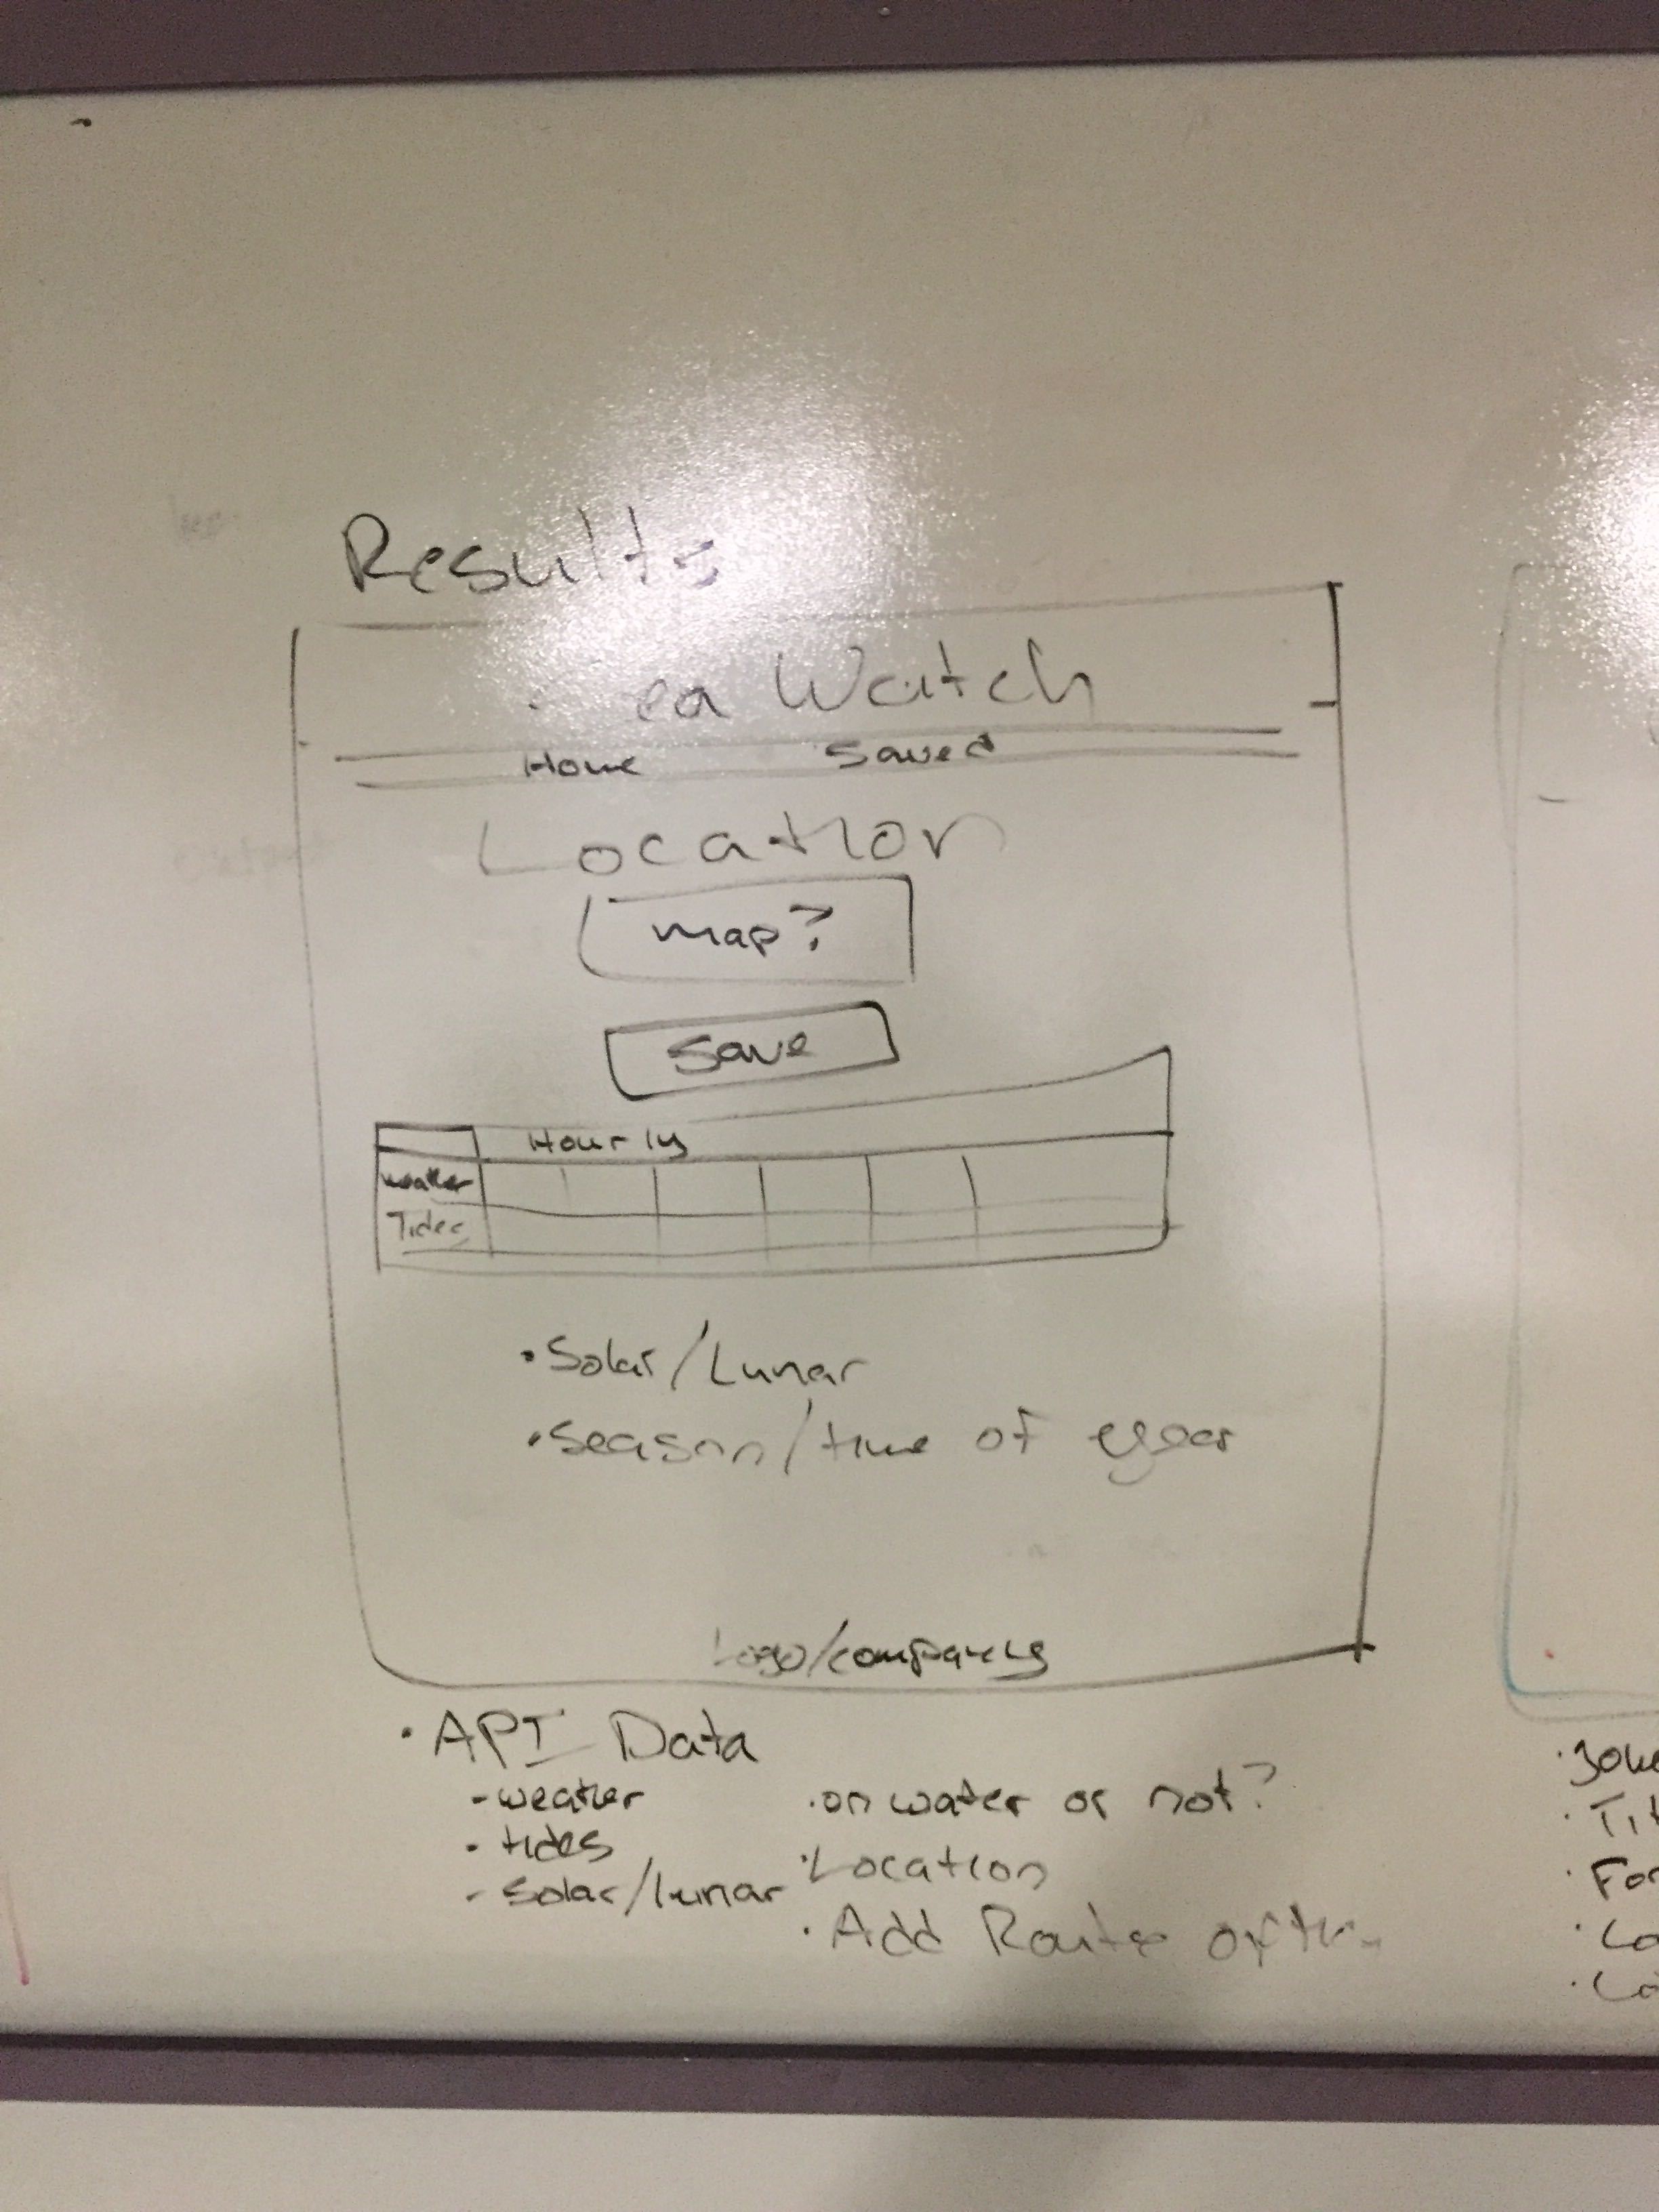 Results
ea Watch
Home Saved
Location
map?
Save
Hourly
weather
Tides
• Solar/Lunar
• Season/time of year
Logo/company
• API Data
- weather
- tides
- Solar/lunar
• on water or not?
• Location
• Add Route after
• Tit
• For
• Lo